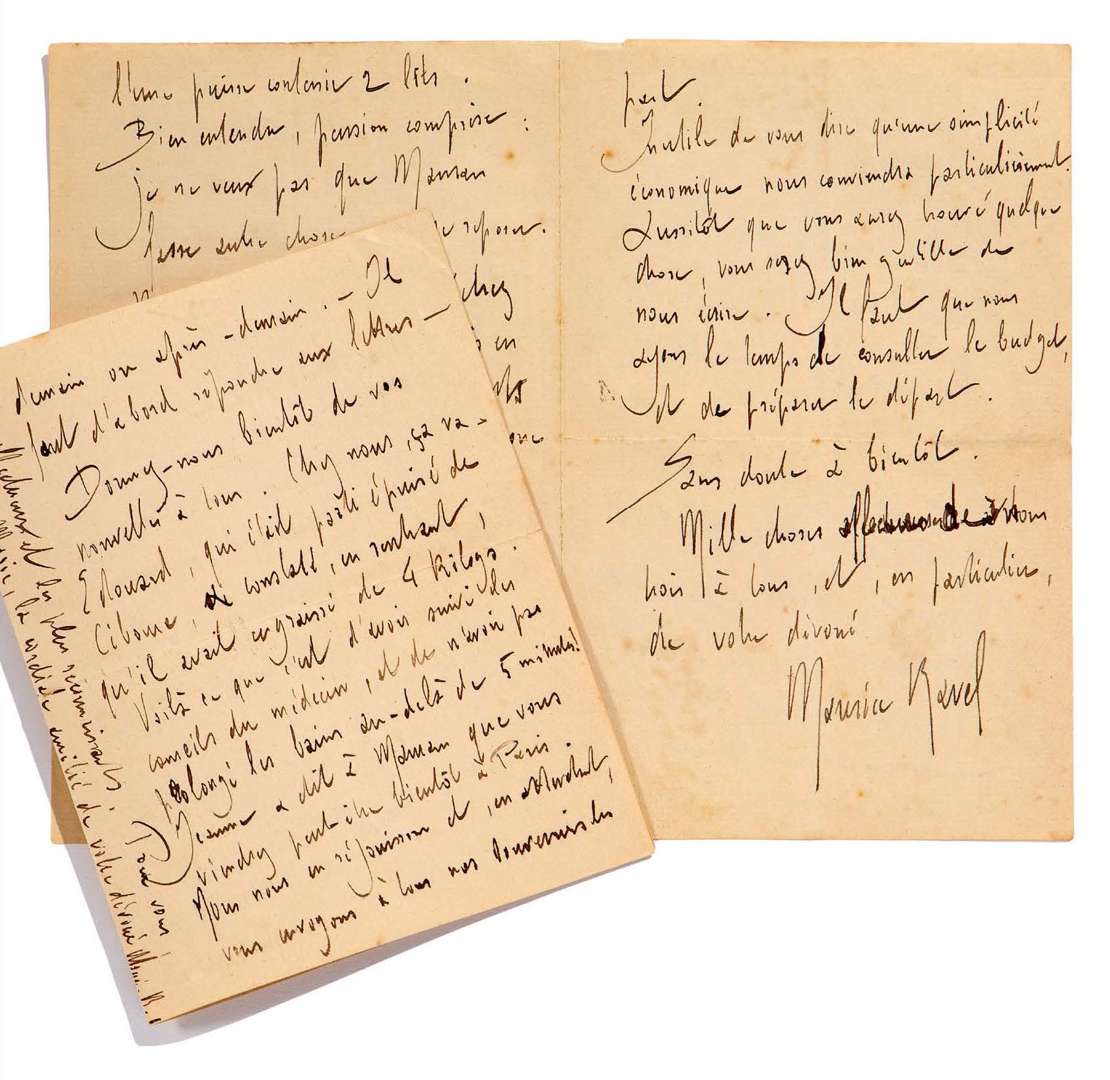 l'une puisse contenir 2 lits.
Bien entendu, pension comprise :
je ne veux pas que Maman
fasse autre chose reposer.
en
part.
Inutile de vous dire qu'une simplicité
économique nous conviendra particulièrement.
Aussitôt que vous aurez trouvé quelque
chose, vous serez bien gentille de
nous écrire. Il faut que nous
ayons le temps de consulter le budget,
et de préparer le départ.
Sans doute à bientôt.
Mille choses affectueuses de nous
trois à tous, et, en particulier,
de votre dévoué
Maurice Ravel
demain ou après-demain. — Il
faut d'abord répondre aux lettres —
Donnez-nous bientôt de vos
nouvelles à tous. Chez nous, ça va -
Edouard, qui était parti épuisé de
Ciboure, a constaté, en rentrant,
qu'il avait engraissé de 4 kilogs.
Voilà ce que c'est d'avoir suivi les
conseils du médecin, et de n'avoir pas
prolongé les bains au-delà de 5 minutes!
Jeanne a dit à Maman que vous
viendrez peut-être bientôt à Paris.
Nous nous en réjouissons et, en attendant,
vous envoyons à tous nos souvenirs les
affectueux et les plus reconnaissants. Pour vous
la cordiale amitié de votre dévoué R.